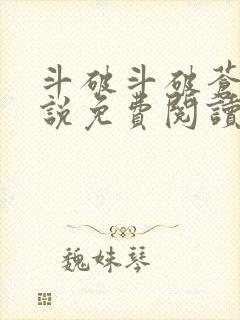 斗破斗破蒼
說免費閱讀
魏妹琴